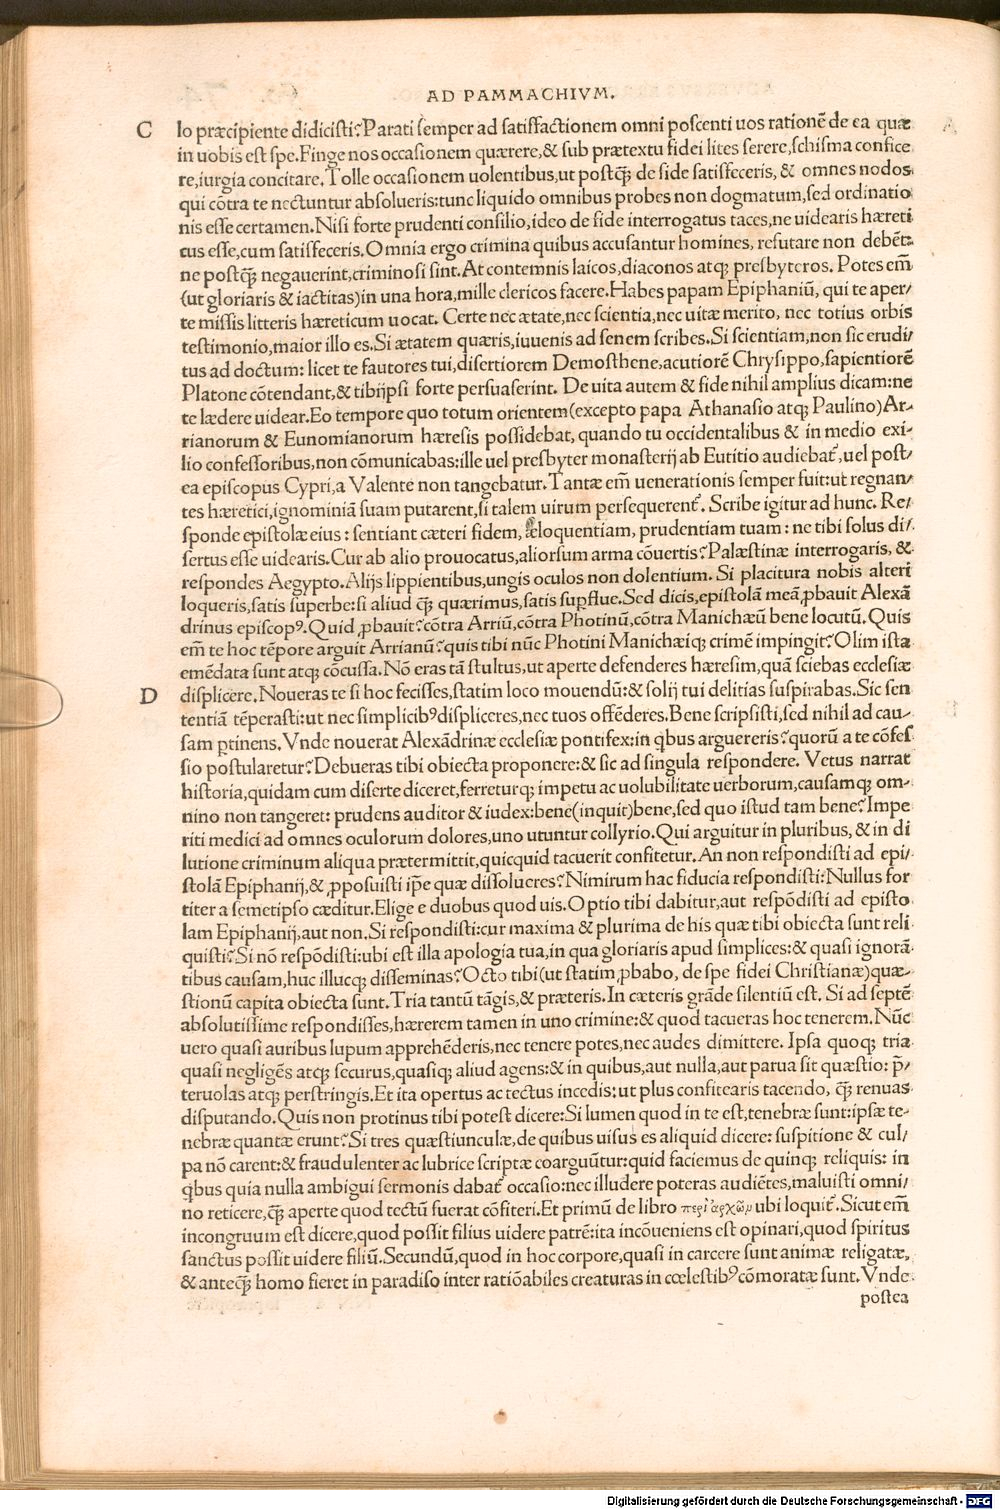 AD PAMMACHIVM.
C lo præcipiente didicisti? Parati semper ad satisfactionem omni poscenti uos rationē de ea quæ
in uobis est spe. Finge nos occasionem quærere, & sub prætextu fidei lites serere, schisma confice
re, iurgia concitare. Tolle occasionem uolentibus, ut postq̄ȝ de fide satisfeceris, & omnes nodos
qui cōtra te nectuntur absolueris: tunc liquido omnibus probes non dogmatum, sed ordinatio
nis esse certamen. Nisi forte prudenti consilio, ideo de fide interrogatus taces, ne uidearis hæreti
cus esse, cum satisfeceris. Omnia ergo crimina quibus accusantur homines, refutare non debēt:
ne postq̄ȝ negauerint, criminosi sint. At contemnis laicos, diaconos atqȝ presbyteros. Potes em̄
(ut gloriaris & iactitas) in una hora, mille clericos facere. Habes papam Epiphaniū, qui te aper/
te missis litteris hæreticum uocat. Certe nec ætate, nec scientia, nec uitæ merito, nec totius orbis
testimonio, maior illo es. Si ætatem quæris, iuuenis ad senem scribes. Si scientiam, non sic erudi/
tus ad doctum: licet te fautores tui, disertiorem Demosthene, acutiorē Chrysippo, sapientiorē
Platone cōtendant, & tibijpsi forte persuaserint. De uita autem & fide nihil amplius dicam: ne
te lædere uidear. Eo tempore quo totum orientem (excepto papa Athanasio atqȝ Paulino) Ar-
rianorum & Eunomianorum hæresis possidebat, quando tu occidentalibus & in medio exi-
lio confessoribus, non cōmunicabas: ille uel presbyter monasterij ab Eutitio audiebat᷒, uel post/
ea episcopus Cypri, a Valente non tangebatur. Tantæ em̄ uenerationis semper fuit: ut regnan-
tes hæretici, ignominiā suam putarent, si talem uirum persequerent᷒. Scribe igitur ad hunc. Re/
sponde epistolæ eius: sentiant cæteri fidem, æloquentiam, prudentiam tuam: ne tibi solus di/
sertus esse uidearis. Cur ab alio prouocatus, aliorsum arma cōuertis? Palæstinæ interrogaris, &
respondes Aegypto. Alijs lippientibus, ungis oculos non dolentium. Si placitura nobis alteri
loqueris, satis superbe: si aliud q̄ȝ quærimus, satis supflue. Sed dicis, epistolā meā ꝓbauit Alexā
drinus episcopꝰ. Quid ꝓbauit? cōtra Arriū, cōtra Photinū, cōtra Manichæū bene locutū. Quis
em̄ te hoc tēpore arguit Arrianū? quis tibi nūc Photini Manichæiqȝ crimē impingit? Olim ista
emēdata sunt atqȝ cōcussa. Nō eras tā stultus, ut aperte defenderes hæresim, quā sciebas ecclesiæ
D displicere. Noueras te si hoc fecisses, statim loco mouendū: & solij tui delitias suspirabas. Sic sen
tentiā tēperasti: ut nec simplicibꝰ displiceres, nec tuos offēderes. Bene scripsisti, sed nihil ad cau-
sam ptinens. Vnde nouerat Alexādrinæ ecclesiæ pontifex: in qbus arguereris? quorū a te cōfes
sio postularetur? Debueras tibi obiecta proponere: & sic ad singula respondere. Vetus narrat
historia, quidam cum diserte diceret, ferreturqȝ impetu ac uolubilitate uerborum, causamqȝ om-
nino non tangeret: prudens auditor & iudex: bene (inquit) bene, sed quo istud tam bene? Impe
riti medici ad omnes oculorum dolores, uno utuntur collyrio. Qui arguitur in pluribus, & in di
lutione criminum aliqua prætermittit, quicquid tacuerit confitetur. An non respondisti ad epi/
stolā Epiphanij, & ꝓposuisti ip̄e quæ dissolueres? Nimirum hac fiducia respondisti: Nullus for
titer a semetipso cæditur. Elige e duobus quod uis. Optio tibi dabitur, aut respōdisti ad episto
lam Epiphanij, aut non. Si respondisti: cur maxima & plurima de his quæ tibi obiecta sunt reli
quisti? Si nō respōdisti: ubi est illa apologia tua, in qua gloriaris apud simplices: & quasi ignorā
tibus causam, huc illucqȝ disseminas? Octo tibi (ut statim ꝓbabo, de spe fidei Christianæ) quæ-
stionū capita obiecta sunt. Tria tantū tāgis, & præteris. In cæteris grāde silentiū est. Si ad septē
absolutissime respondisses, hærerem tamen in uno crimine: & quod tacueras hoc tenerem. Nūc
uero quasi auribus lupum apprehēderis, nec tenere potes, nec audes dimittere. Ipsa quoqȝ tria
quasi negligēs atqȝ securus, quasiqȝ aliud agens: & in quibus, aut nulla, aut parua sit quæstio: p̄
teruolas atqȝ perstringis. Et ita opertus ac tectus incedis: ut plus confitearis tacendo, q̄ȝ renuas
disputando. Quis non protinus tibi potest dicere: Si lumen quod in te est, tenebræ sunt: ipsæ te-
nebræ quantæ erunt? Si tres quæstiunculæ, de quibus uisus es aliquid dicere: suspitione & cul/
pa nō carent: & fraudulenter ac lubrice scriptæ coarguūtur: quid faciemus de quinqȝ reliquis: in
qbus quia nulla ambigui sermonis dabat᷒ occasio: nec illudere poteras audiētes, maluisti omni/
no reticere, q̄ȝ aperte quod tectū fuerat cōfiteri. Et primū de libro περὶ ἀρχῶν ubi loquit᷒. Sicut em̄
incongruum est dicere, quod possit filius uidere patrē: ita incōueniens est opinari, quod spiritus
sanctus possit uidere filiū. Secundū, quod in hoc corpore, quasi in carcere sunt animæ religatæ,
& anteq̄ȝ homo fieret in paradiso inter ratiōabiles creaturas in cœlestibꝰ cōmoratæ sunt. Vnde
postea
Digitalisierung gefördert durch die Deutsche Forschungsgemeinschaft - DFG